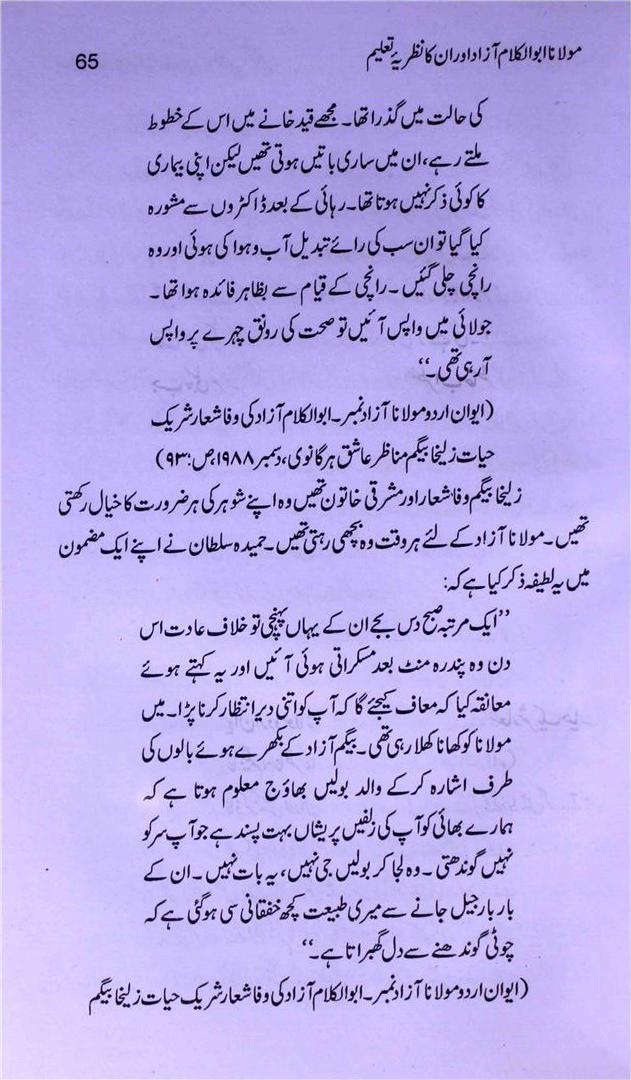 مولانا ابوالکلام آزاد اور ان کا نظریۂ تعلیم
65
کی حالت میں گذرا تھا۔ مجھے قید خانے میں اس کے خطوط
ملتے رہے، ان میں ساری باتیں ہوتی تھیں لیکن اپنی بیماری
کا کوئی ذکر نہیں ہوتا تھا۔ رہائی کے بعد ڈاکٹروں سے مشورہ
کیا گیا تو ان سب کی رائے تبدیل آب و ہوا کی ہوئی اور وہ
رانچی چلی گئیں۔ رانچی کے قیام سے بظاہر فائدہ ہوا تھا۔
جولائی میں واپس آئیں تو صحت کی رونق چہرے پر واپس
آ رہی تھی۔‘‘
(ایوان اردو مولانا آزاد نمبر۔ ابوالکلام آزاد کی وفا شعار شریک
حیات زلیخا بیگم مناظر عاشق ہرگانوی، دسمبر ۱۹۸۸، ص: ۹۳)
زلیخا بیگم وفا شعار اور مشرقی خاتون تھیں وہ اپنے شوہر کی ہر ضرورت کا خیال رکھتی
تھیں۔ مولانا آزاد کے لئے ہر وقت وہ بچھی رہتی تھیں۔ حمیدہ سلطان نے اپنے ایک مضمون
میں یہ لطیفہ ذکر کیا ہے کہ:
’’ایک مرتبہ صبح دس بجے ان کے یہاں پہنچی تو خلاف عادت اس
دن وہ پندرہ منٹ بعد مسکراتی ہوئی آئیں اور یہ کہتے ہوئے
معانقہ کیا کہ معاف کیجئے گا کہ آپ کو اتنی دیر انتظار کرنا پڑا۔ میں
مولانا کو کھانا کھلا رہی تھی۔ بیگم آزاد کے بکھرے ہوئے بالوں کی
طرف اشارہ کرکے والد بولیں بھاؤج معلوم ہوتا ہے کہ
ہمارے بھائی کو آپ کی زلفیں پریشاں بہت پسند ہے جو آپ سر کو
نہیں گوندھتی۔ وہ لجا کر بولیں جی نہیں، یہ بات نہیں۔ ان کے
بار بار جیل جانے سے میری طبیعت کچھ خفقانی سی ہوگئی ہے کہ
چوٹی گوندھنے سے دل گھبراتا ہے۔‘‘
(ایوان اردو مولانا آزاد نمبر۔ ابوالکلام آزاد کی وفا شعار شریک حیات زلیخا بیگم